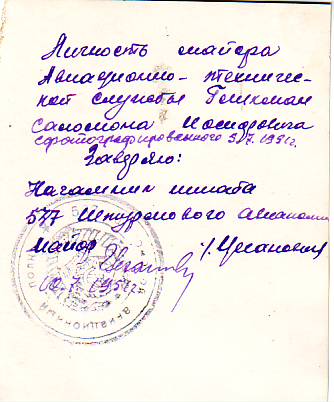 Личность майора
Авиационно-техничес-
кой службы Гошкоман
Саломона Иосифовича
сфотографированного 3.7.1951г.
Заверяю:
Начальник штаба
577 Штурмового авиаполка
Майор
10.7.1951г.
АВИАЦИОННЫЙ